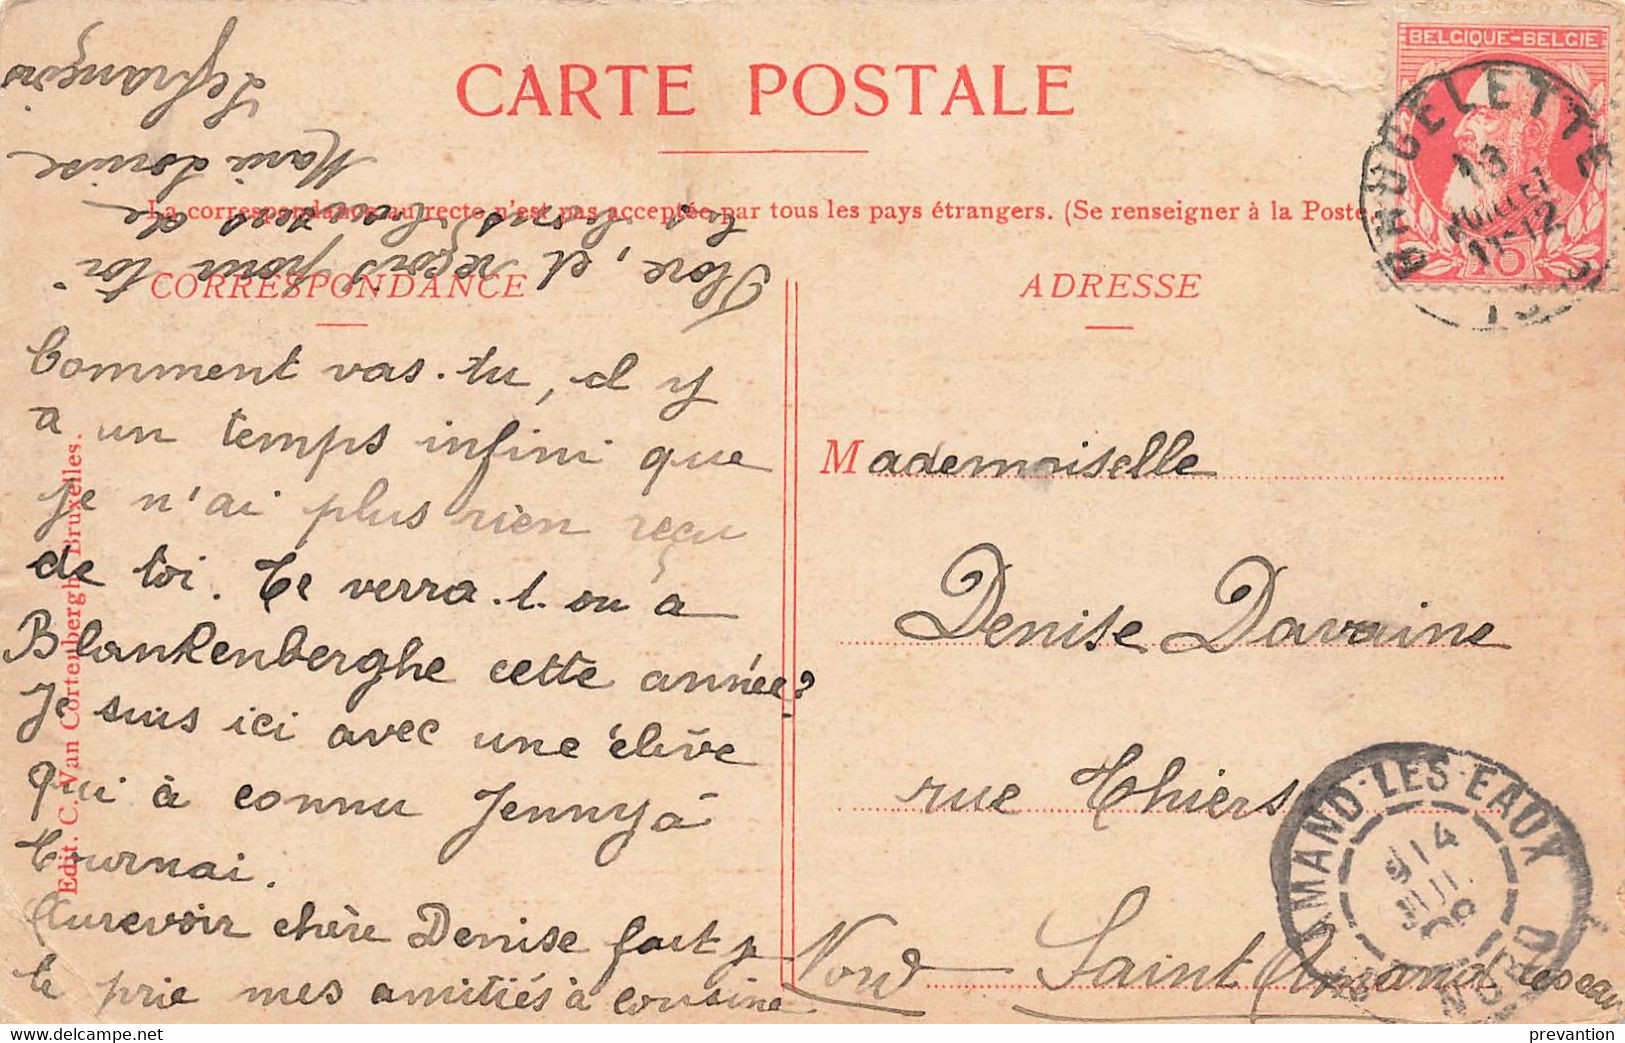 CARTE POSTALE
La correspondance au recto n'est pas acceptée par tous les pays étrangers. (Se renseigner à la Poste.)
CORRESPONDANCE
Comment vas-tu, il y
a un temps infini que
je n'ai plus rien reçu
de toi. Te verra-t-on à
Blankenberghe cette année?
Je suis ici avec une élève
qui à connu Jenny à
Tournai.
Aurevoir chère Denise fait je
te prie mes amitiés à cousine
Flore, et reçois pour toi
les bons baisers de
Marie Louise
Lefrançois
Edit. C. Van Cortenbergh, Bruxelles.
ADRESSE
Mademoiselle
Denise Davaine
rue Thiers
Saint Amand les eaux
Nord
BELGIQUE-BELGIE
10
BRUGELETTE
13
JUILLET
11-12
AMAND-LES-EAUX
14
NORD
prevantion